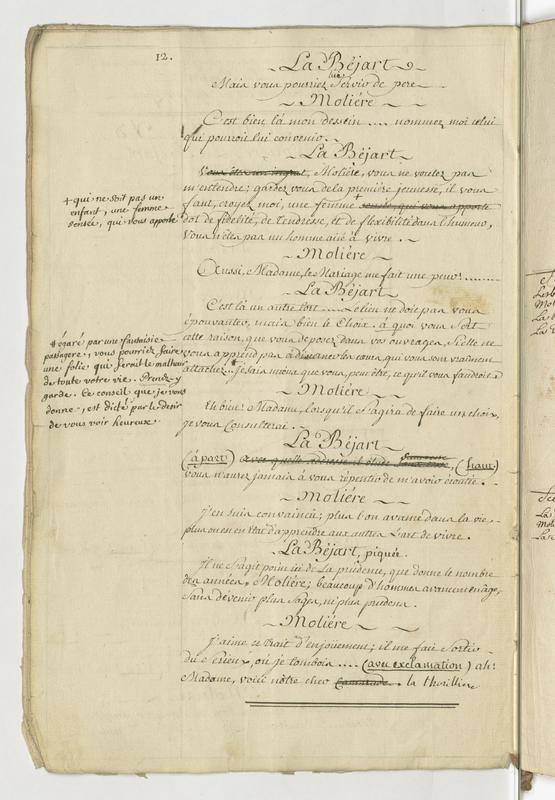 12.
La Béjart
Mais vous pourriez lui servir de pere
Moliére
C'est bien là mon dessein .... nommez moi celui
qui pourroit lui convenir.
La Béjart
Vous êtes un ingrat, Moliére, vous ne voulez pas
m'entendre; gardez vous de la premiére jeunesse, il vous
faut, croyez moi, une femme + sensée, qui vous apporte
dot de fidelité, de tendresse, et de flexibilité dans l'humeur,
vous n'êtes pas un homme aisé à vivre.
+ qui ne soit pas un
enfant, une femme
sensée, qui vous apporte
Moliére
Aussi, Madame, le Mariage me fait une peur!..........
La Béjart
C'est là un autre tort .... le lien ne doit pas vous
épouvanter, mais bien le choix. à quoi vous sert
cette raison, que vous deposez dans vos ouvrages, si elle ne
vous apprend pas à discerner les cœurs qui vous sont vraiment
attachez.. je sais mieux que vous, peut être, ce qu'il vous faudroit #
# égaré par une fantaisie
passagere, vous pourriez faire
une folie qui feroit le malheur
de toute votre vie. Prenez-y
garde. Ce conseil que je vous
donne, est dicté par le desir
de vous voir heureux.
Moliére
Eh bien! Madame, lorsqu'il s'agira de faire un choix,
je vous consulterai.
La Béjart
(à part) avec quelle adresse il élude (haut)
vous n'aurez jamais à vous repentir de m'avoir écoutée.
Moliére
J'en suis convaincu; plus l'on avance dans la vie,
plus on est en état d'apprendre aux autres l'art de vivre.
La Béjart, piquée.
Il ne s'agit point ici de la prudence, que donne le nombre
des années, Moliére; beaucoup d'hommes avancent en âge,
sans devenir plus sages, ni plus prudens.
Moliére
J'aime ce trait d'enjouement; il me fait sortir
du serieux, où je tombois .... (avec exclamation) ah!
Madame, voici nôtre cher Camarade la thorilliere